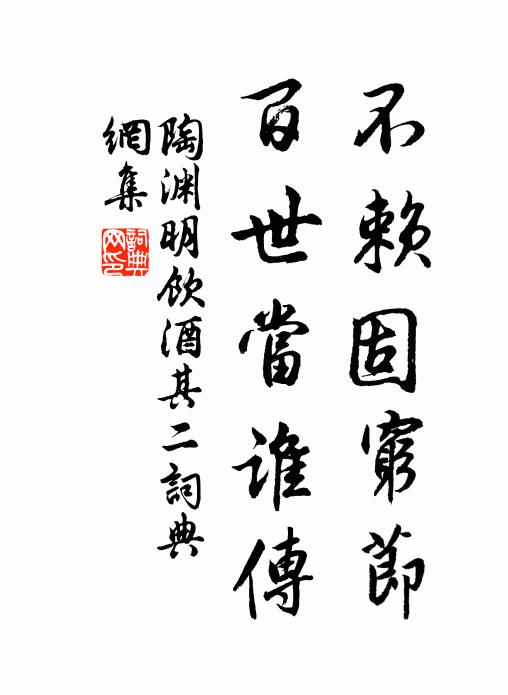 不賴固窮節
百世當誰傳
陶淵明飲酒其二詞典
網集
詞典
网印